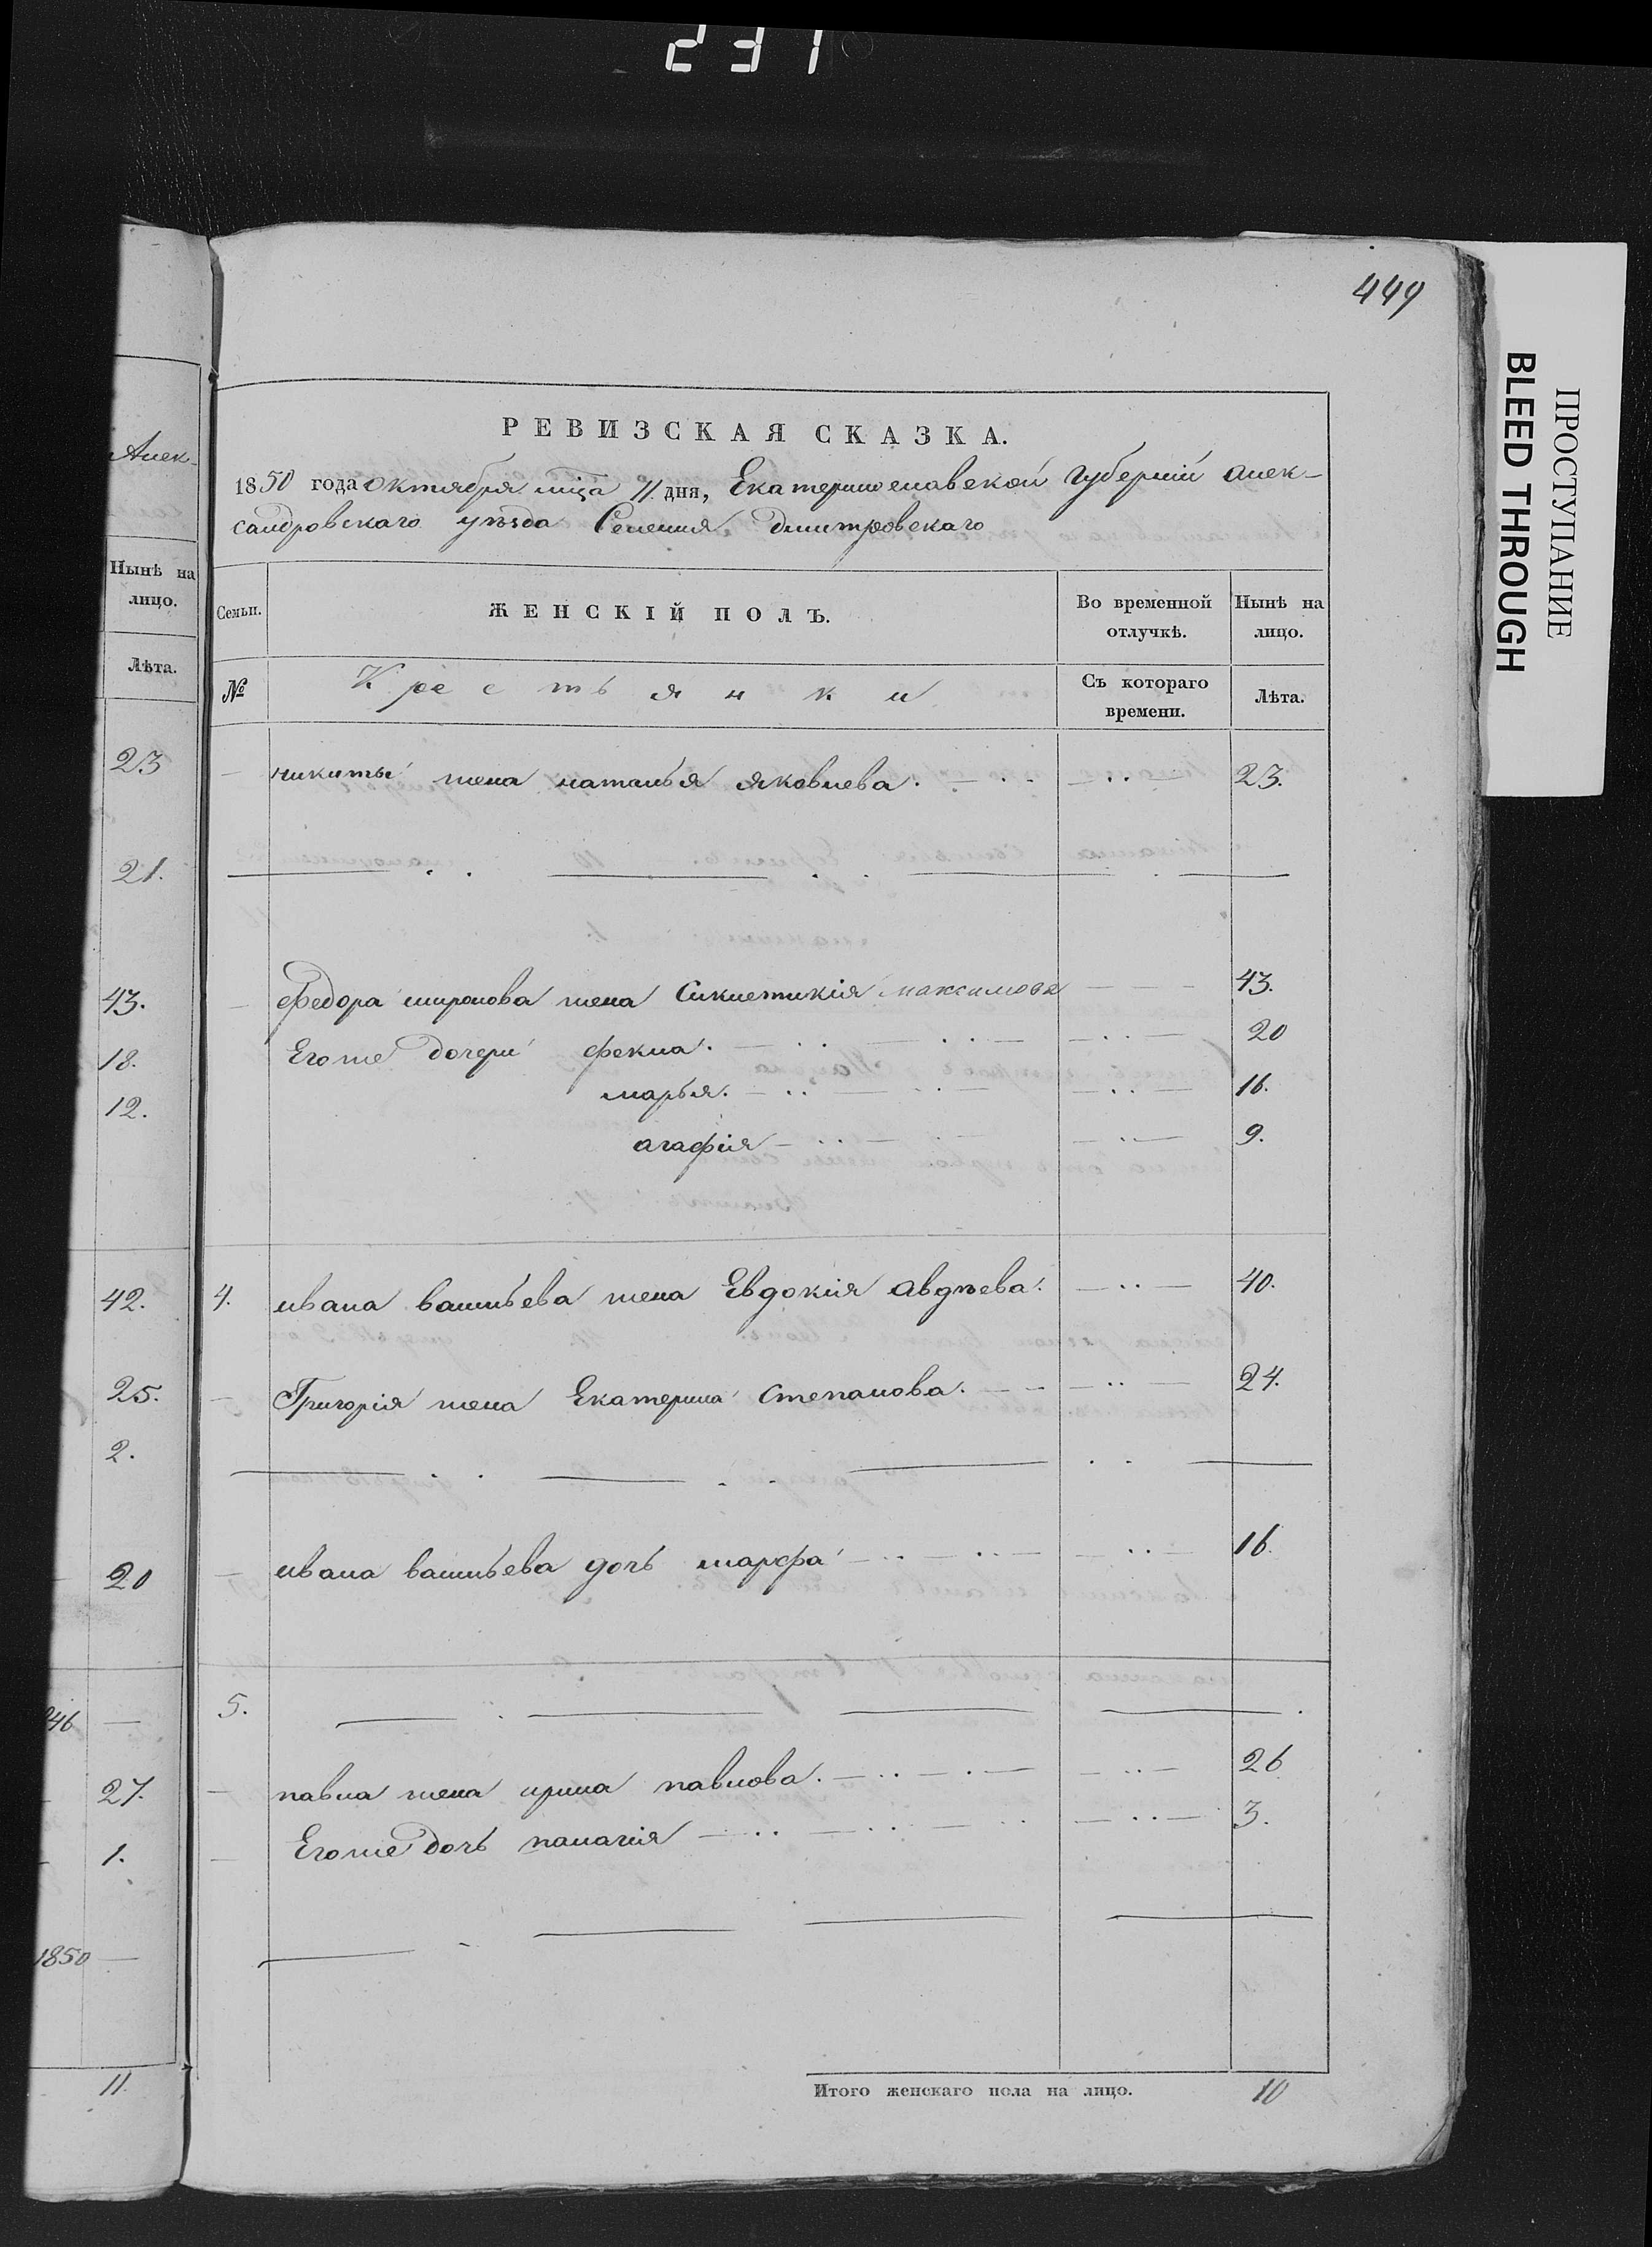 231
449
ПРОСТУПАНИЕ
BLEED THROUGH
Алек-
Нынѣ на
лицо.
Лѣта.
23
21.
43.
18.
12.
42.
25.
2.
20
27.
1.
1850
11.
РЕВИЗСКАЯ СКАЗКА.
1850 года октября мца 11 дня, Екатеринославской Губерніи Алек-
сандровскаго уѣзда Селенія Дмитровскаго
Семьи.
ЖЕНСКІЙ ПОЛЪ.
Во временной
отлучкѣ.
Нынѣ на
лицо.
№
Крестьянки
Съ котораго
времени.
Лѣта.
никиты жена наталья яковлева. 23.
Федора миронова жена Синклетикія максимова 43.
Егоже дочери фекла. 20
марья. 16.
агафія 9.
4. ивана васильева жена Евдокія авдѣева. 40.
Григорія жена Екатерина степанова. 24.
ивана васильева дочь марфа 16.
5.
павла жена ирина павлова. 26
Егоже дочь палагія 3.
Итого женскаго пола на лицо. 10